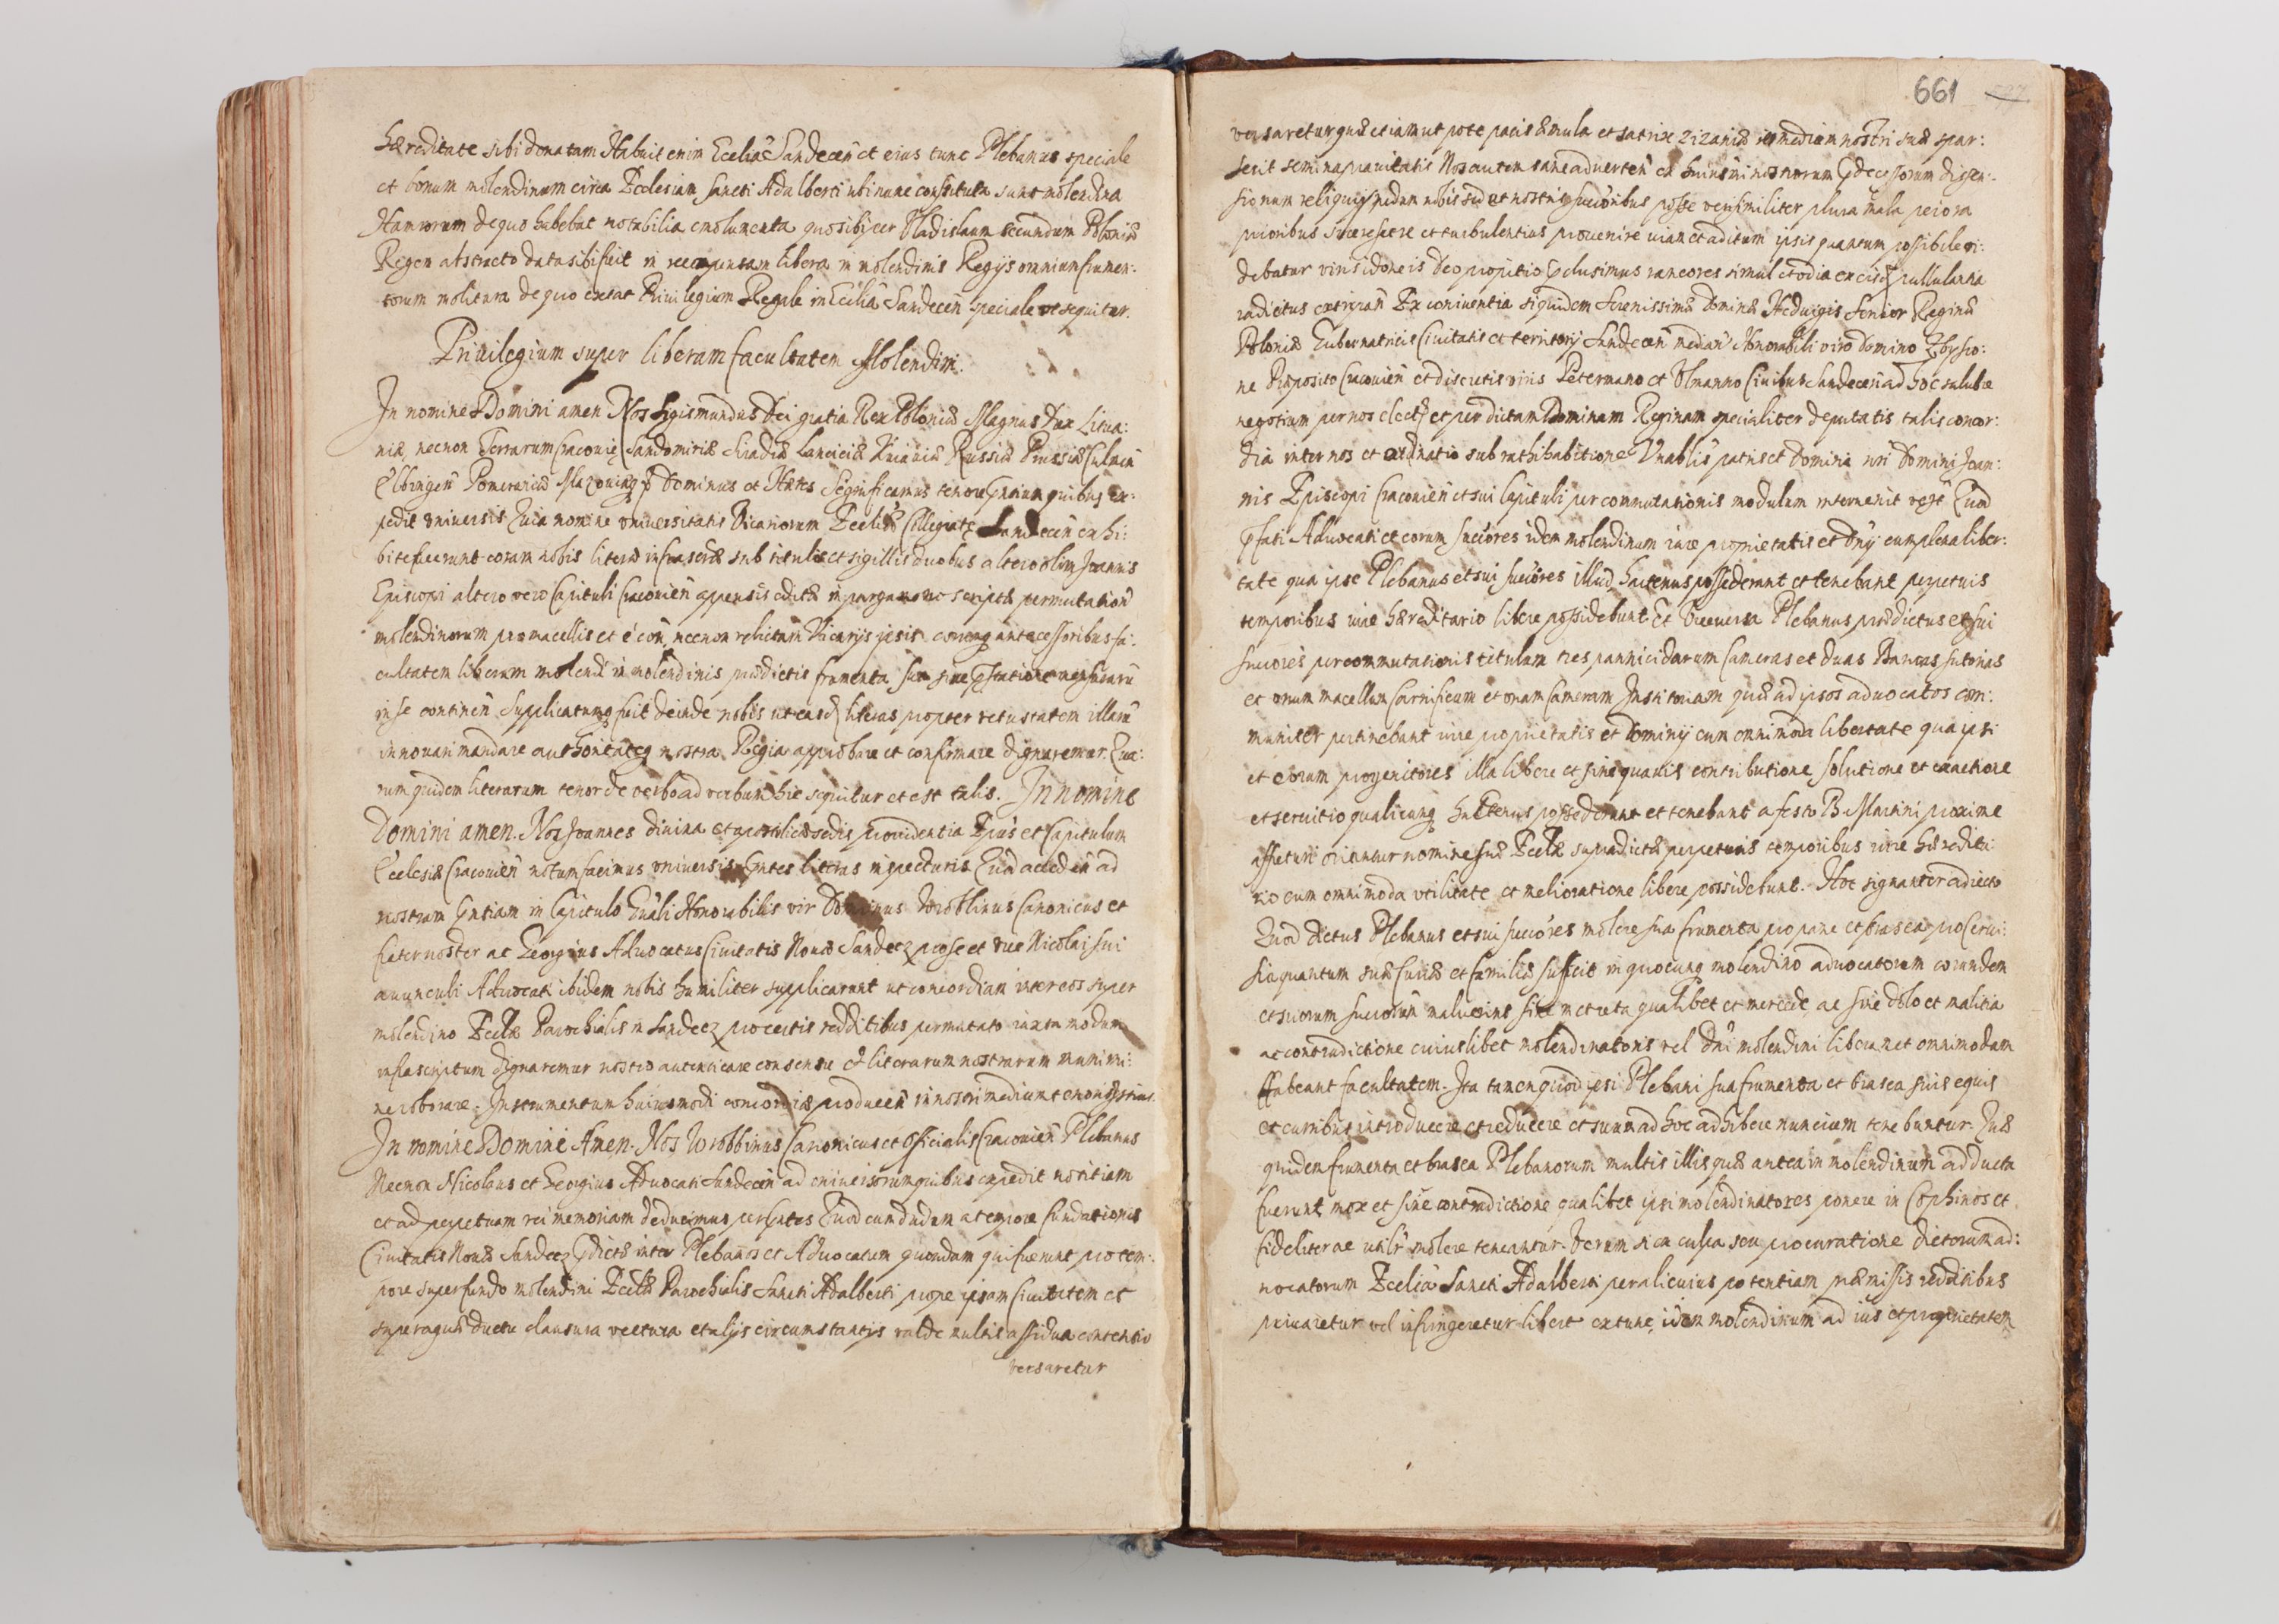 Hæreditate sibi donatam Habuit enim Eccliã Sandecen̄ et eius tunc Plebanus speciale
et bonum molendinum circa Ecclesiam Sancti Adalberti ubi nunc constituta sunt molendina
Hamrorum de quo habebat notabilia emolumenta quo sibi per Vladislaum secundum Poloniæ
Regem abstracto data sibi fuit in recompensam libera in molendinis Regijs omnium frumen:
torum molitura de quo extat Priuilegium Regale in Ecclia Sandecen̄ speciale ut sequitur.
Priuilegium super liberam facultatem Molendini.
In nomine Domini amen Nos Sigismundus Dei gratia Rex Poloniæ Magnus Dux Litua:
niæ, necnon Terrarum Cracouię Sandomiriæ Siradiæ Lanciciæ Kuiauiæ Russiæ Prussiæ Culmen̄
Elbingen̄ Pomeraniæ Mazouięq₃ Dominus et Hæres Significamus tenore p̄ntium quibus ex:
pedit vniuersis Quia nomine vniuersitatis Vicariorum Eccliæ Collegiatę Sandecen̄ exhi:
bite fuerunt coram nobis literæ infrascriptæ sub titulis et sigillis duobus altero olim Joannis
Episcopi altero vero Capituli Cracouien̄ appensis editæ in pargameno scriptæ permutation̄
molendinorum pro macellis et è con̄, necnon relictam Vicarijs ipsis eorumq₃ antecessoribus fa:
cultatem liberam molendi in molendinis prædictis frumenta sua sine p̄statione mensurarū
in se continen̄ Supplicatumq₃ fuit deinde nobis ut easd₃ literas propter vetustatem illarū
innouari mandare authoritateq₃ nostra Regia approbare et confirmare dignaremur. Qua:
rum quidem literarum tenor de verbo ad verbum hic sequitur et est talis. In nomine
Domini amen. Nos Joannes diuina et apostolicæ sedis prouidentia Ep̄us et Capitulum
Ecclesiæ Cracouien̄ notum facimus vniuersis p̄ntes literas inspecturis Quod acceden̄ ad
nostram p̄ntiam in Capitulo Gñali Honorabilis vir Dominus Wroblinus Canonicus et
frater noster ac Georgius Aduocatus Ciuitatis Nouæ Sandecz pro se et vice Nicolai sui
auunculi Aduocati ibidem nobis humiliter supplicarunt ut concordiam inter eos super
molendino Eccliæ Parochialis in Sandecz pro certis redditibus permutato iuxta modum
infrascriptum dignaremur nostro autenticare consensu et literarum nostrarum munimi:
ne roborare. Instrumentum huiusmodi concordiæ producen̄ in nostri medium tenoris istius.
In nomine Domini Amen. Nos Wroblinus Canonicus et Officialis Cracouien̄ Plebanus
Necnon Nicolaus et Georgius Aduocati Sandecen̄ ad vniuersorum quibus expedit notitiam
et ad perpetuam rei memoriam deducimus per p̄ntes Quod cum dudum a tempore fundationis
Ciuitatis Nouæ Sandecz p̄dictæ inter Plebanos et Aduocatum quondam qui fuerunt pro tem:
pore super fundo molendini Eccliæ Parochialis Sancti Adalberti prope ipsam Ciuitatem et
super aquæ ductu clausura vectura et alijs circumstantijs valde multis assidua contentio
versaretur
661
versaretur quæ etiam ut pote pacis æmula et satrix Zizaniæ in medium nostri sua spar:
serit semina prauitatis Nos autem sane aduerten̄ ex huiusmi nostrorum p̄decessorum dissen:
sionum reliquijs nedum nobis sed et nostris successoribus posse verisimiliter plura mala peiora
prioribus succrescere et turbulentius prouenire uiam et aditum ipsis quantum possibile vi:
debatur viris idoneis deo propitio p̄clusimus rancores simul et odia exciso₃ pullulantia
radicitus extirpan̄ Ex coniuentia siquidem Serenissimæ Dominæ Heduigis Senior Reginæ
Poloniæ Gubernatricis Ciuitatis et territorij Sandecen̄ median̄ Honorabili viro domino Zbysco:
ne Præposito Cracouien̄ et discretis viris Petermano et Vlmanno Ciuibus Sandecen̄ ad hoc salubre
negotium per nos elect₃ et per dictam Dominam Reginam specialiter deputatis talis concor:
dia inter nos et ordinatio sub rathihabitione Vnablis patris et domini nr̄i Domini Joan:
nis Episcopi Cracouien̄ et sui Capituli per commutationis modulum interuenit vezt Quod
p̄fati Aduocati et eorum succores idem molendinum iure proprietatis et dñij cum plena liber:
tate qua ipse Plebanus et sui succores illud hactenus possederunt et tenebant perpetuis
temporibus iure hæreditario libere possidebunt. Et viceuersa Plebanus prædictus et sui
succores per commutationis titulum tres pannicidarum Cameras et duas Bancas sutorias
et vnum macellum Carnificum et vnam Cameram Institoriam quæ ad ipsos aduocatos com:
muniter pertinebant iure proprietatis et Dominij cum omnimoda libertate qua ipsi
et eorum progenitores illa libere et sine quauis contributione solutione et exactione
et seruitio qualicunq₃ hactenus possederunt et tenebant a festo B. Martini proxime
affuturi nomine suæ Eccliæ supradictæ perpetuis temporibus iure hæredita:
rio cum omnimoda vtilitate et melioratione libere possidebunt. Hoc signanter adiecto
Quod dictus Plebanus et sui succores molere sua frumenta pro pane et brasea pro Cerui:
sia quantum suæ Curiæ et familiæ sufficit in quocunq₃ molendino aduocatorum eorundem
et suorum succorum maluerint sine metreta qualibet et mercede ac sine dolo et malitia
ac contradictione cuiuslibet molendinatoris vel Dñi molendini liberam et omnimodam
habeant facultatem. Ita tamen quod ipsi Plebani sua frumenta et brasea suis equis
et curribus introducere et reducere et suum ad hoc adhibere nuncium tenebuntur. Quæ
quidem frumenta et brasea Plebanorum multis illis quæ antea in molendinum adducta
fuerunt mox et sine contradictione qualibet ipsi molendinatores ponere in Cophinos et
fideliter ac utilr̄ molere teneantur. Verum si ex culpa seu procuratione dictorum ad:
uocatorum Ecclia Sancti Adalberti per alicuius potentiam præmissis redditibus
priuaretur vel infringeretur libert extunc idem molendinum ad ius et proprietatem